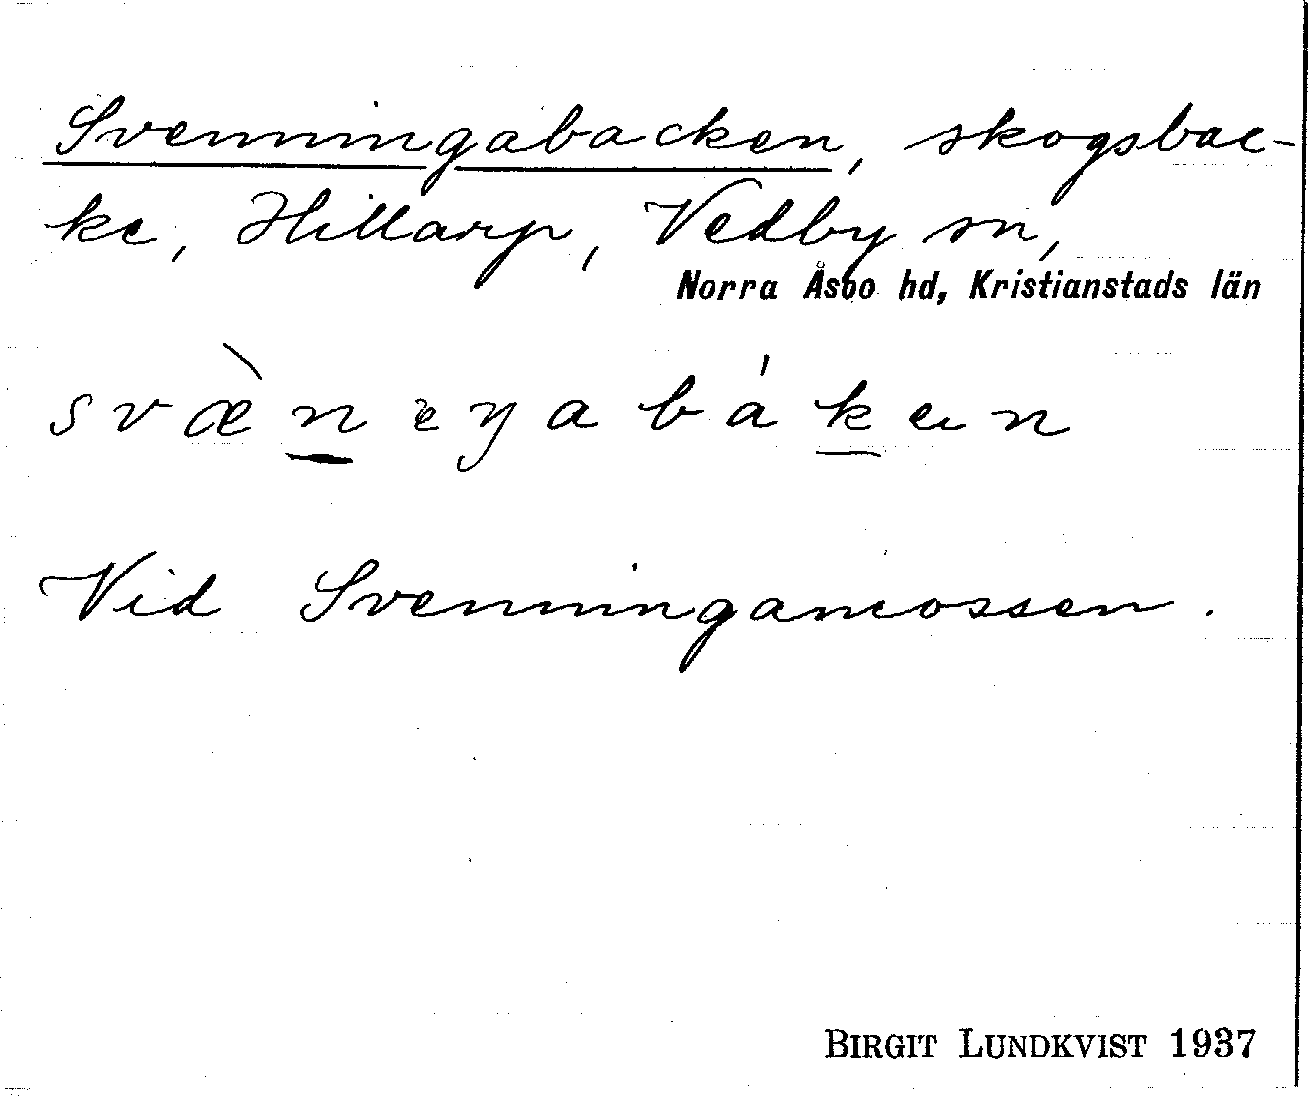 Svenningabacken, skogsbac-
ke, Hillarp, Vedby sn,
Norra Åsbo hd, Kristianstads län
svæ̀n̲eŋabák̲en
Vid Svenningamossen.
BIRGIT LUNDKVIST 1937